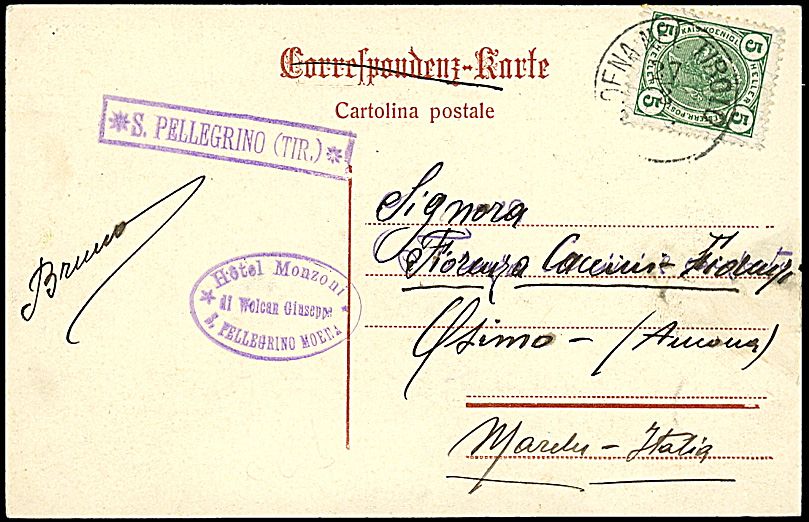 Correspondenz-Karte
Cartolina postale
5 KAIS. KOENIGL. 5
HELLER HELLER
5 5
TIROL
* S. PELLEGRINO (TIR.) *
Bruno
Hôtel Monzoni
* di Wolcan Giuseppe *
S. PELLEGRINO MOENA
Signora
Fiorenza
Osimo - (Ancona)
Marche - Italia